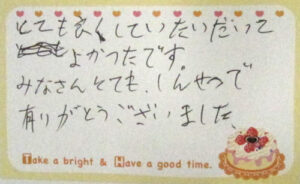 とても良くしていたいだいて
よかったです。
みなさんとても、しんせつで
有りがとうございました、
Take a bright & Have a good time.